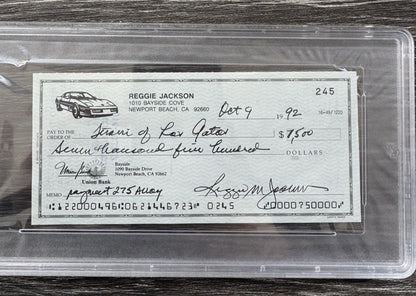 REGGIE JACKSON
1010 BAYSIDE COVE
NEWPORT BEACH, CA 92660
245
Oct 9 1992
16-49/1220
PAY TO THE ORDER OF Ferrari of Los Gatos $ 7,500
Seven thousand five hundred DOLLARS
Union Bank
Bayside
1090 Bayside Drive
Newport Beach, CA 92662
MEMO payment 275 Alloy Reggie M Jackson
⑆122000496⑆0621446723⑈ 0245 ⑈0000750000⑈